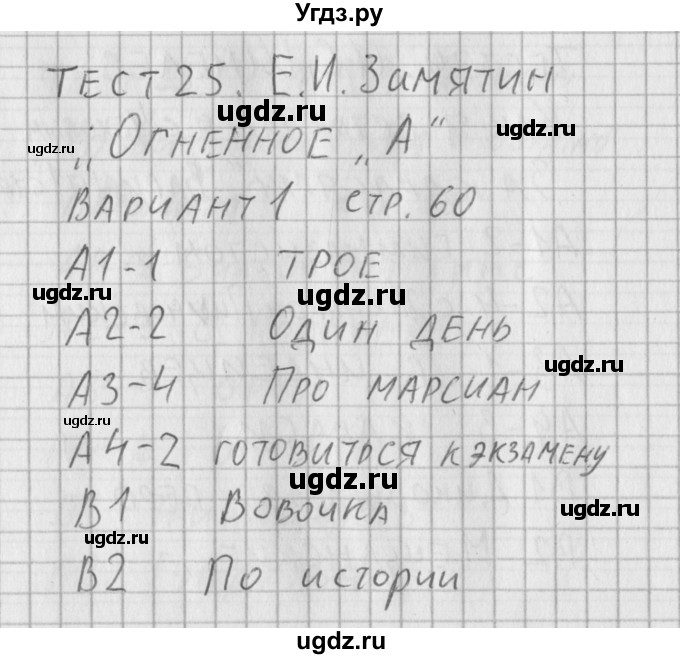 Угдз.ру
ТЕСТ 25. Е.И. Замятин
ugdz.ru ugdz.ru
ugdz.ru
„Огненное „А“
ВАРИАНТ 1 стр. 60
А1-1 ТРОЕ
ugdz.ru ugdz.ru
А2-2 Один день
ugdz.ru
А3-4 Про марсиан
ugdz.ru
А4-2 готовиться к экзамену
ugdz.ru ugdz.ru
В1 Вовочка
ugdz.ru
В2 По истории
ugdz.ru